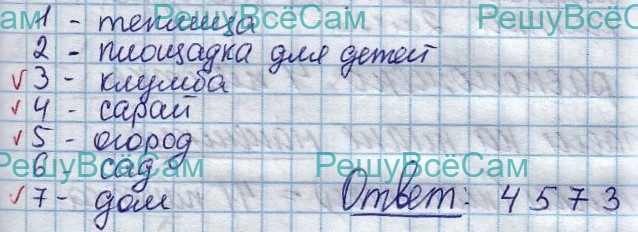 РешуВсёСам РешуВсёСам
1 - теплица
2 - площадка для детей
√ 3 - клумба
√ 4 - сарай
√ 5 - огород
6 - сад
РешуВсёСам РешуВсёСам
√ 7 - дом
Ответ: 4 5 7 3